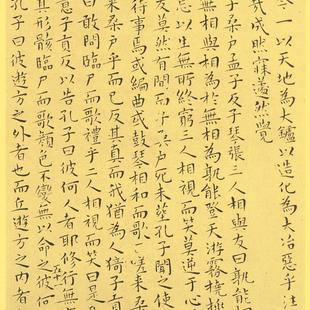 今一以天地為大鑪以造化為大冶惡乎往
哉成然寐蘧然覺
子桑戶孟子反子琴張三人相與友曰孰能相
無相與相為於無相為孰能登天遊霧撓挑
忘以生無所終窮三人相視而笑莫逆於心
友莫然有間而子桑戶死未葬孔子聞之使
行事焉或編曲或鼓琴相和而歌嗟來桑
來桑戶乎而已反其真而我猶為人猗子貢
曰敢問臨尸而歌禮乎二人相視而笑曰是
意子貢反以告孔子曰彼何人者耶修行無
其形骸臨尸而歌顏色不變無以命之彼何
孔子曰彼遊方之外者也而丘遊方之內者